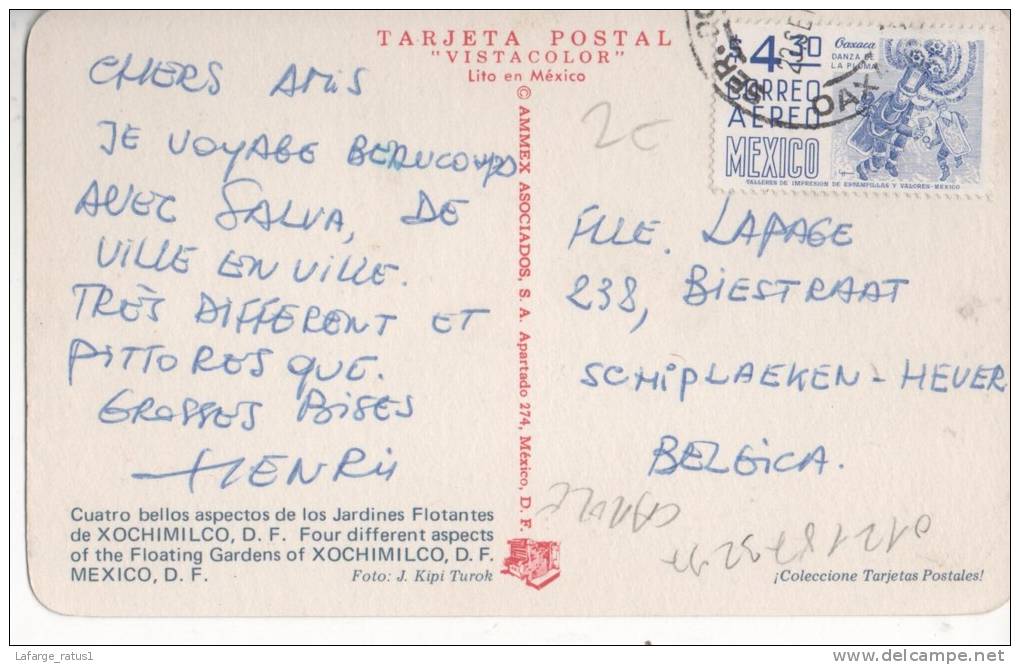 TARJETA POSTAL
"VISTACOLOR"
Lito en México
CHERS AMIS
JE VOYAGE BEAUCOUP
AVEC SALVA, DE
VILLE EN VILLE.
TRÈS DIFFERENT ET
PITTORESQUE.
GROSSES BISES
HENRI
Cuatro bellos aspectos de los Jardines Flotantes
de XOCHIMILCO, D. F. Four different aspects
of the Floating Gardens of XOCHIMILCO, D. F.
MEXICO, D. F.
Foto: J. Kipi Turok
© AMMEX ASOCIADOS, S. A. Apartado 274, México, D. F.
$4.30
Oaxaca
DANZA DE
LA PLUMA
CORREO
AEREO
MEXICO
TALLERES DE IMPRESION DE ESTAMPILLAS Y VALORES-MEXICO
OAX
2€
FLLE. LAPAGE
238, BIESTRAAT
SCHIPLAEKEN-HEVER
BELGICA.
¡Coleccione Tarjetas Postales!
Lafarge_ratus1
delcampe.net